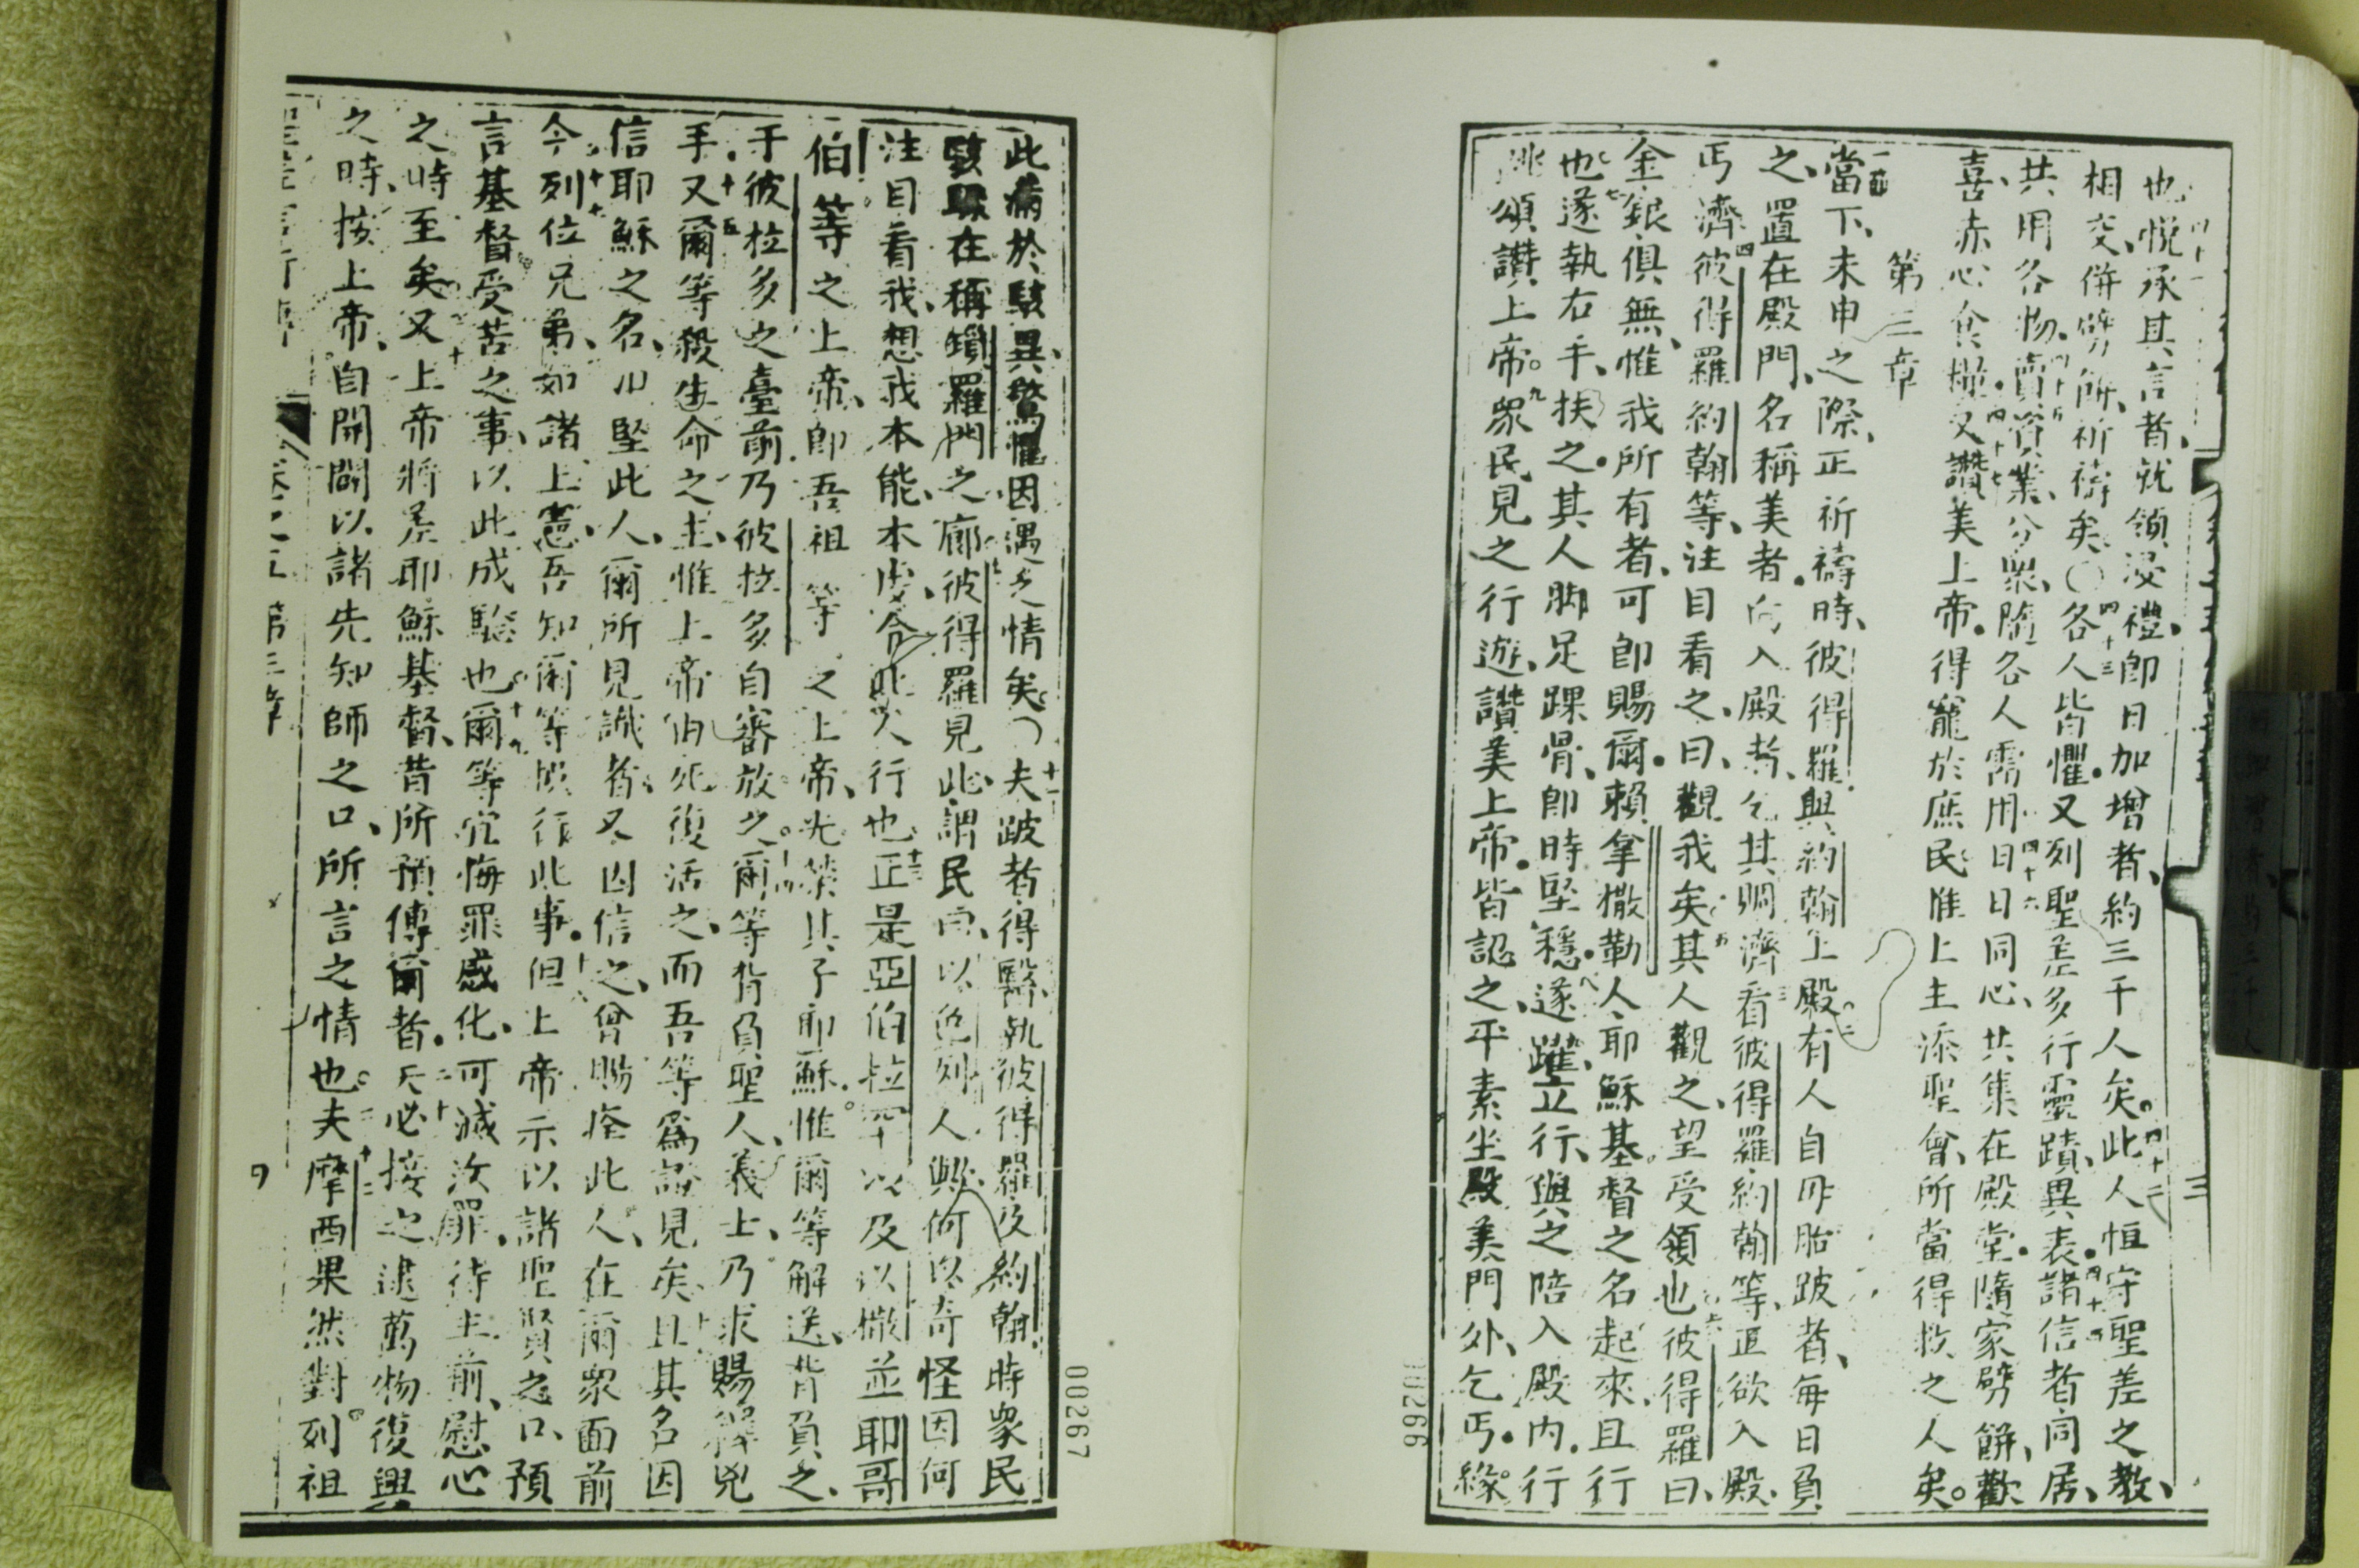 也悅承其言者、就領浸禮、即日加增者、約三千人矣。四十二此人恒守聖差之教、
相交、併劈餅、祈禱矣〇四十三各人皆懼。又列聖差多行靈蹟異表。四十四諸信者同居、
共用各物。四十五賣資業、分眾、隨各人需用。四十六日日同心、共集在殿堂。隨家劈餅、歡
喜、赤心食糧。四十七又讚美上帝。得寵於庶民。惟上主添聖會、所當得救之人矣。
第三章
當下、未申之際、正祈禱時、彼得羅與約翰上殿。二有人自母胎跛者、每日負
之、置在殿門、名稱美者。向入殿者、乞其賙濟。三看彼得羅約翰等、正欲入殿、
丐濟。四彼得羅約翰等、注目看之、曰、觀我矣。五其人觀之、望受領也。六彼得羅曰、
金銀俱無、惟我所有者、可即賜爾。賴拿撒勒人耶穌基督之名起來、且行
也。七遂執右手、扶之。其人脚足踝骨、即時堅穩。八遂躍立行、與之陪入殿內。行
跳頌讚上帝。九眾民見之行遊、讚美上帝。皆認之平素坐殿美門外、乞丐。緣
此病於駭異驚懼因遇之情矣。十一夫跛者得醫、執彼得羅及約翰時眾民
駭聚在稱鎖羅門之廊。彼得羅見此、謂民曰、以色列人與、何以奇怪因何
注目看我、想我本能、本虔、令此人行也。十三正是亞伯拉罕以及以撒並耶哥
伯等之上帝、即吾祖等之上帝、光榮其子耶穌。惟爾等解送、背負之、
于彼拉多之臺前。乃彼拉多自審放之。十四爾等背負聖人、義士、乃求賜釋兇
手。十五又爾等殺生命之主、惟上帝由死復活之、而吾等爲證見矣。且其名因
信耶穌之名、堅此人、爾所見識者。又因信之、曾賜痊此人、在爾眾面前
今列位兄弟、如諸上憲、吾知爾等悞行此事。但上帝示以諸聖賢之口、預
言基督受苦之事、以此成驗也。爾等宜悔罪感化、可滅汝罪、待主前、慰心
之時至矣。又上帝將差耶穌基督、昔所預傳爾者。天必接之、逮萬物復興
之時、按上帝、自開闢以諸先知師之口、所言之情也。夫摩西果然對列祖
卷之五 第三章
00266
00267